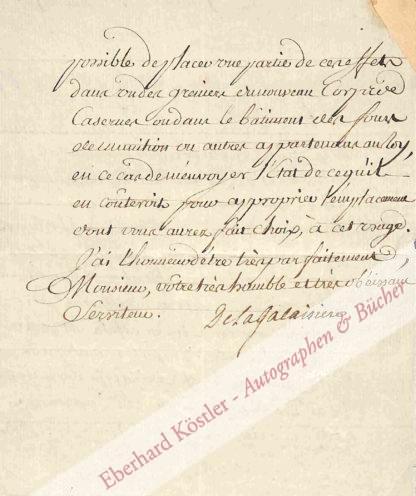 possible de placer une partie de ces effets
dans un des greniers du nouveau Corps de
Casernes ou dans le bâtiment des fours
de munition ou autres appartenans au Roy,
en ce cas de m'envoyer l'Etat de ce qu'il
en couteroit pour approprier l'emplacement
dont vous aurez fait choix, à cet usage.
J'ai l'honneur d'être très parfaitement,
Monsieur, votre très humble et très obéissant
Serviteur. De la Galaisiere
Eberhard Köstler - Autographen & Bücher